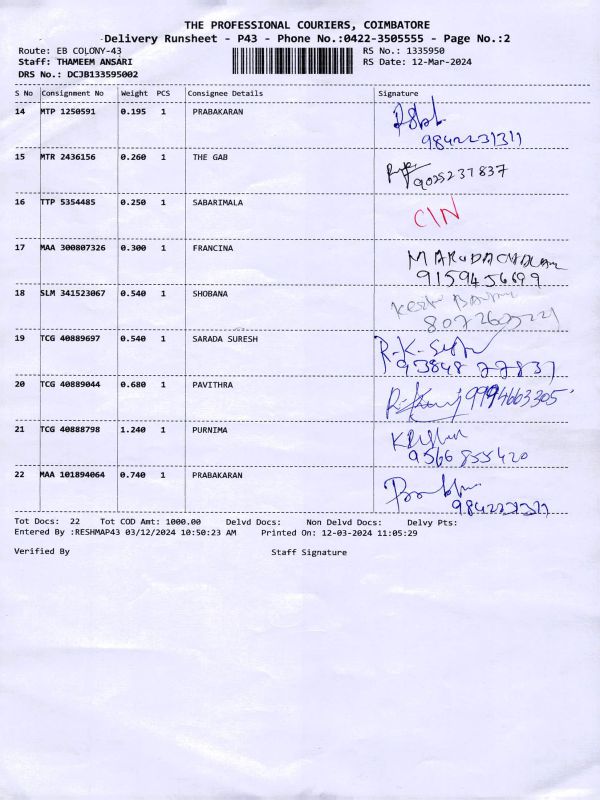 THE PROFESSIONAL COURIERS, COIMBATORE
Delivery Runsheet - P43 - Phone No.:0422-3505555 - Page No.:2
Route: EB COLONY-43 RS No.: 1335950
Staff: THAMEEM ANSARI RS Date: 12-Mar-2024
DRS No.: DCJB133595002
S No Consignment No Weight PCS Consignee Details Signature
14 MTP 1250591 0.195 1 PRABAKARAN
9842231311
15 MTR 2436156 0.260 1 THE GAB
9025237837
16 TTP 5354485 0.250 1 SABARIMALA CIN
17 MAA 300807326 0.300 1 FRANCINA
9159456699
18 SLM 341523067 0.540 1 SHOBANA
19 TCG 40889697 0.540 1 SARADA SURESH R-K-
93848 27837
20 TCG 40889044 0.680 1 PAVITHRA 9994663305
21 TCG 40888798 1.240 1 PURNIMA
9566 855420
22 MAA 101894064 0.740 1 PRABAKARAN
Tot Docs: 22 Tot COD Amt: 1000.00 Delvd Docs: Non Delvd Docs: Delvy Pts:
Entered By :RESHMAP43 03/12/2024 10:50:23 AM Printed On: 12-03-2024 11:05:29
Verified By Staff Signature